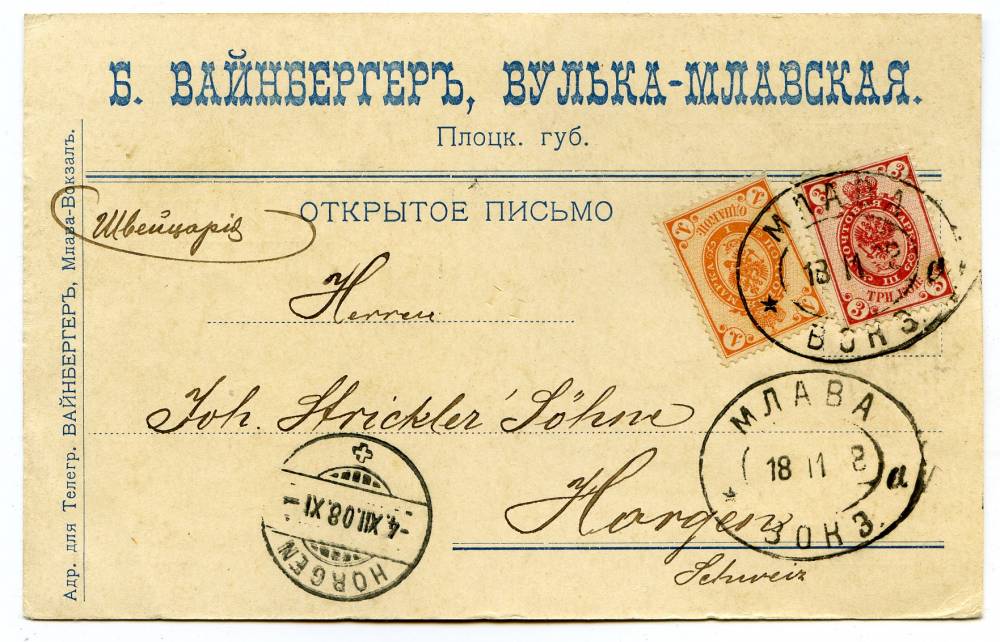 Б. ВАЙНБЕРГЕРЪ, ВУЛЬКА-МЛАВСКАЯ.
Плоцк. губ.
Адр. для Телегр. ВАЙНБЕРГЕРЪ, Млава-Вокзалъ.
Швейцарія
ОТКРЫТОЕ ПИСЬМО
Herren
Joh. Strickler' Söhne
Horgen
Schweiz
МЛАВА
18 11
ВОКЗ.
а
3
3
3
ПОЧТОВАЯ МАРКА
ТРИ
1
1
1
МАРКА
МЛАВА
18 11 8
а
ВОКЗ.
-4.XII.08.XI-
HORGEN